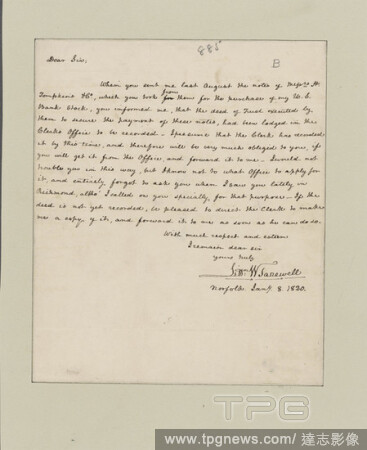 885
B
Dear Sir,
When you sent me last August the notes of Messrs. H.
Tompkins & Co., which you took from them for the purchase of my U. S.
Bank Stock, you informed me, that the deed of Trust executed by
them to secure the payment of these notes, had been lodged in the
Clerks Office to be recorded. I presume that the Clerk has recorded
it by this time, and therefore will be very much obliged to you, if
you will get it from the Office, and forward it to me. I would not
trouble you in this way, but I know not to what Office to apply for
it, and entirely forgot to ask you when I saw you lately in
Richmond, altho' I called on you specially, for that purpose. If the
deed is not yet recorded, be pleased to direct the Clerk to make
me a copy of it, and forward it to me as soon as he can do so.
With much respect and esteem
I remain dear sir
yours truly
Littn. W Tazewell
Norfolk. Jany. 8. 1820.
TPG
www.tpgnews.com/達志影像